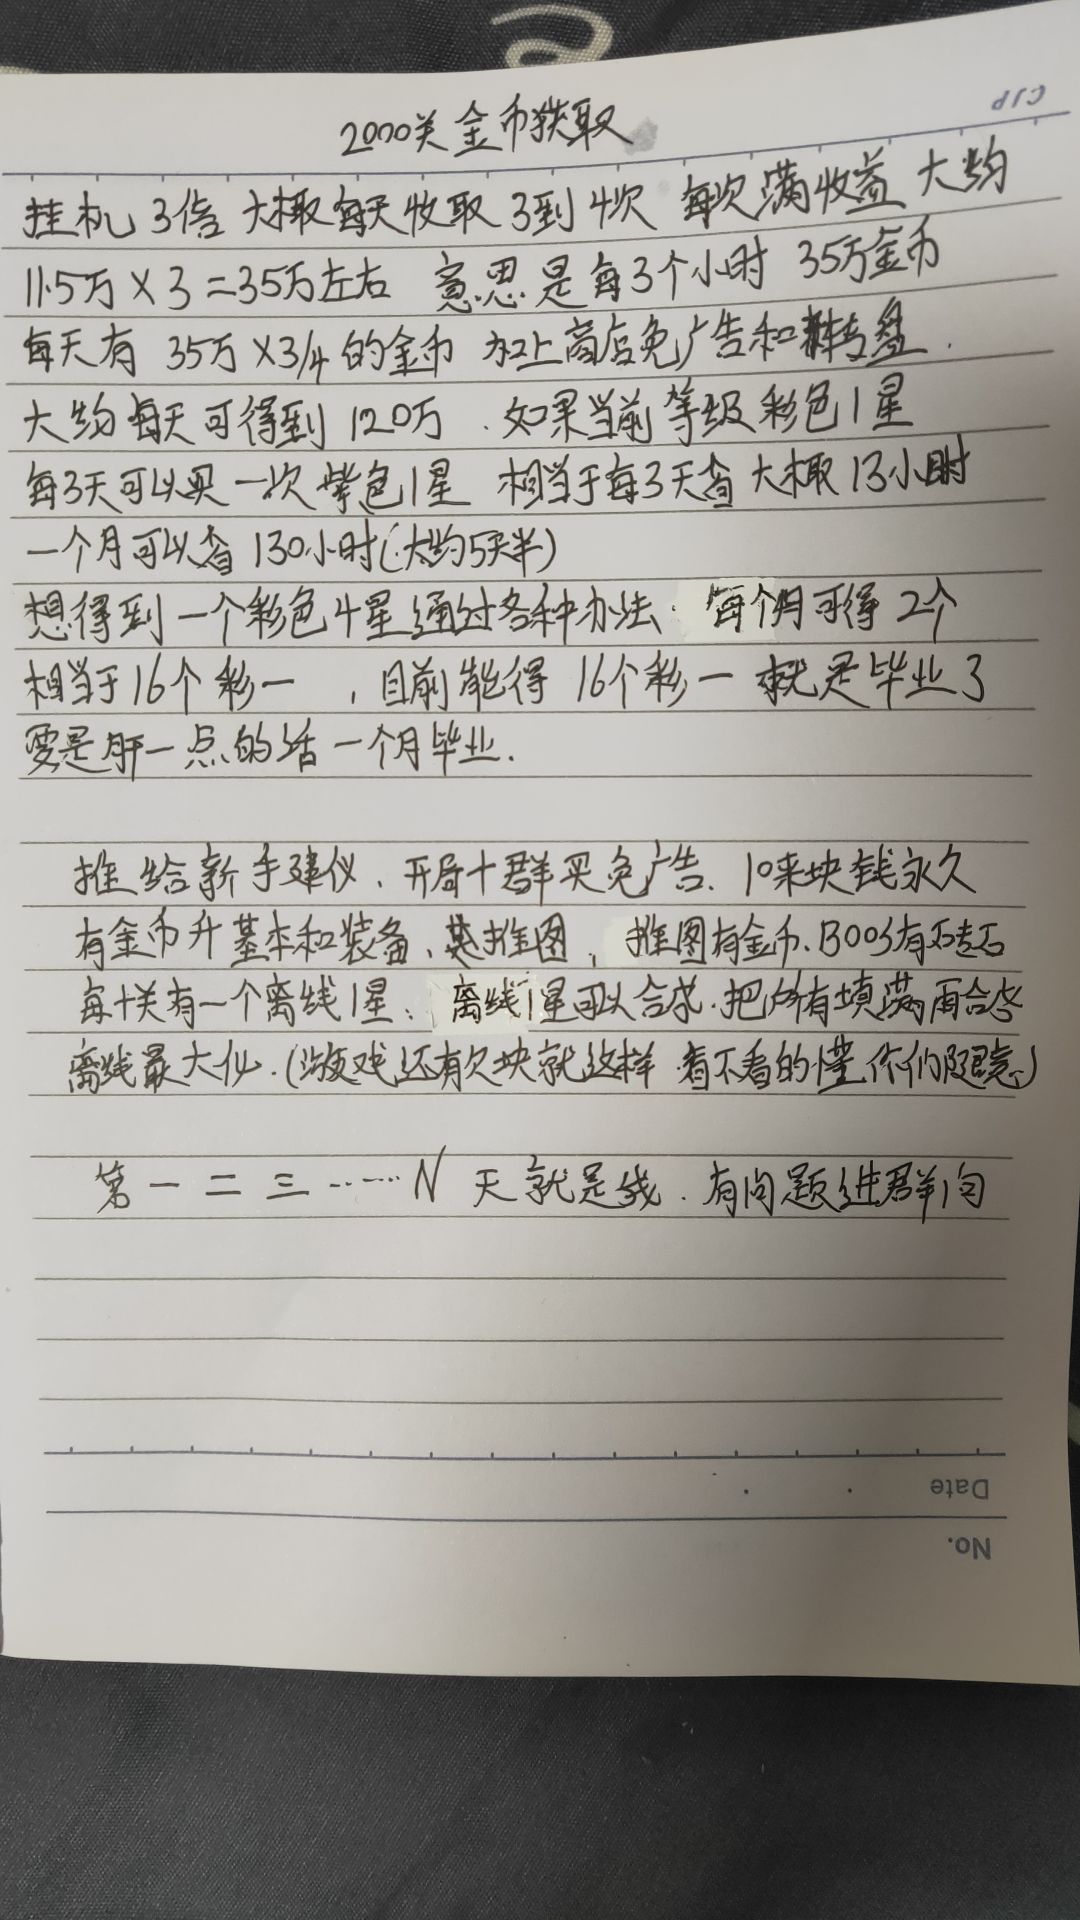 CJP
2000关金币获取
挂机3倍 大概每天收取3到4次 每次满收益 大约
11.5万×3=35万左右 意思是每3个小时 35万金币
每天有 35万×3/4的金币 加上商店免广告和转盘.
大约每天可得到120万.如果当前等级彩色1星
每3天可以买一次紫色1星 相当于每3天省大概13小时
一个月可以省130小时(大约5天半)
想得到一个彩色4星通过各种办法.每个月可得2个
相当于16个彩一 ,目前能得16个彩一 就是毕业了
要是肝一点的话 一个月毕业.
推给新手建仪、开局十群买免广告.10来块钱永久
有金币升基本和装备、推图, 推图有金币.BOOS有石
每十关有一个离线1星. 离线1星可以合成.把所有填满再合成
离线最大化.(游戏还有欠块就这样 看不看的懂你们随意.)
第一二三……N天就是线.有问题进群问
Date
No.